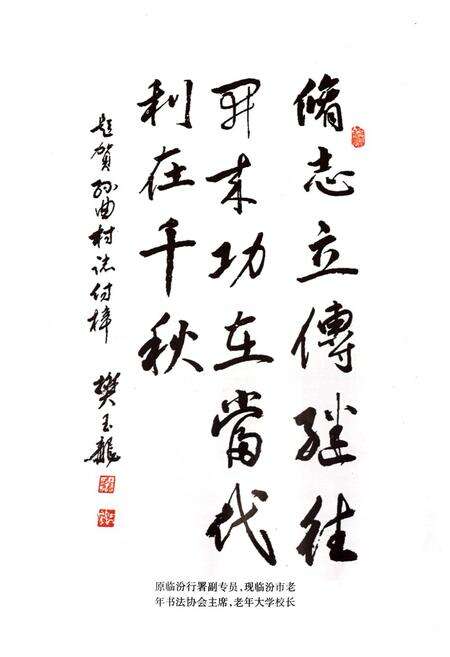 脩志立傳继往
开来功在當代
利在千秋
题贺孙曲村志付梓
樊玉龍
原临汾行署副专员，现临汾市老
年书法协会主席，老年大学校长